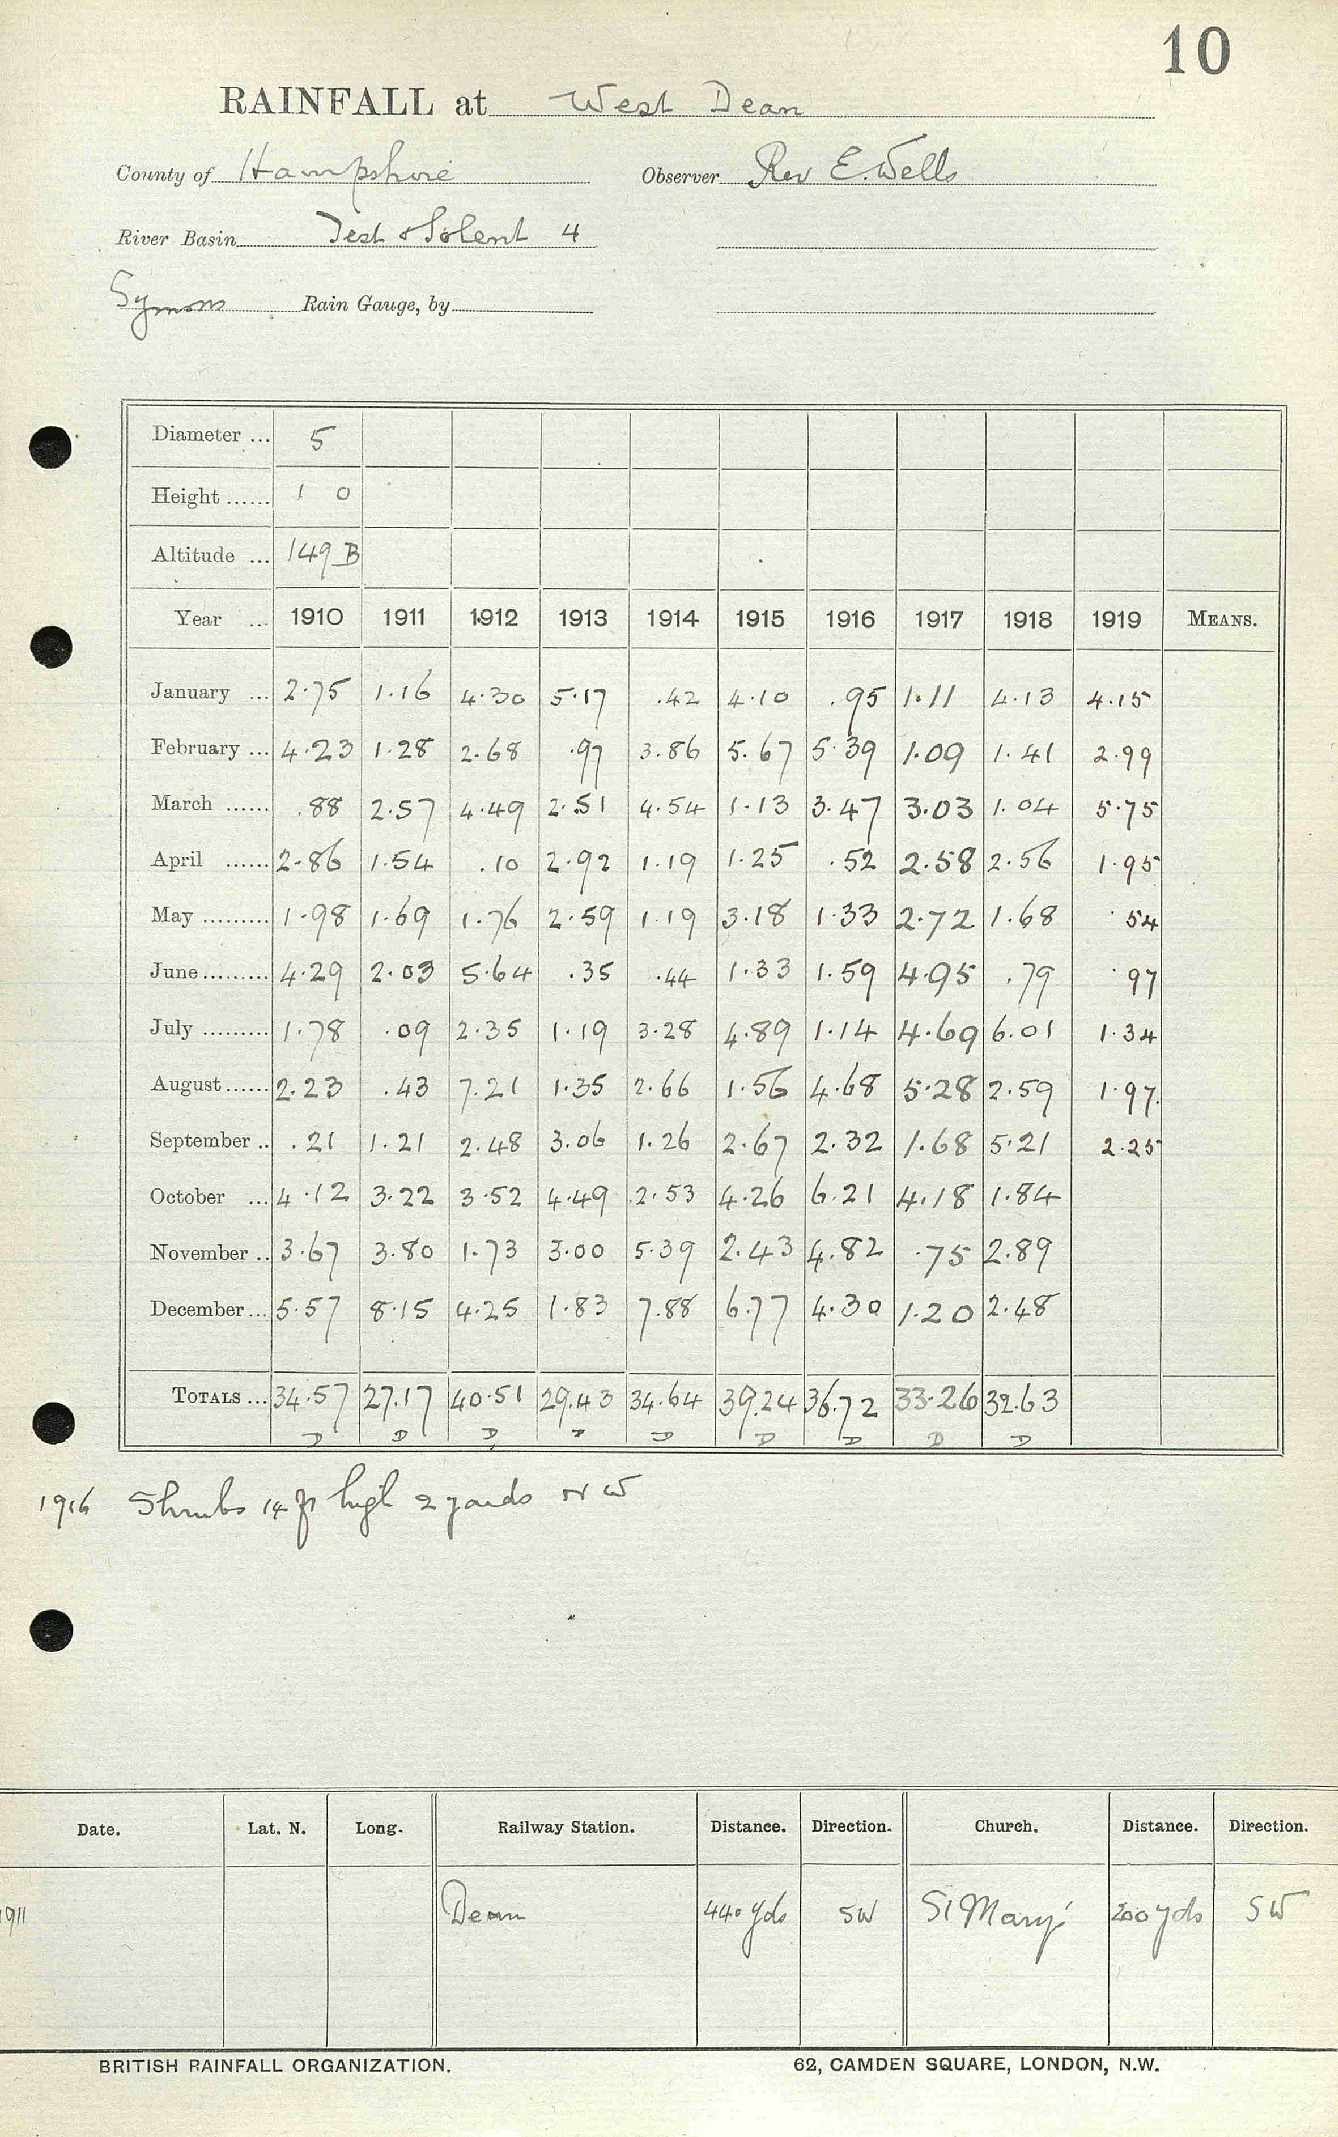 10
RAINFALL at West Dean
County of Hampshire Observer Rev E. Wells
River Basin Test & Solent 4
Symons Rain Gauge, by
Diameter ... 5
Height ...... 1 0
Altitude ... 149 B
Year ... 1910 1911 1912 1913 1914 1915 1916 1917 1918 1919 MEANS.
January ... 2.75 1.16 4.30 5.17 .42 4.10 .95 1.11 4.13 4.15
February ... 4.23 1.28 2.68 .97 3.86 5.67 5.39 1.09 1.41 2.99
March ...... .88 2.57 4.49 2.51 4.54 1.13 3.47 3.03 1.04 5.75
April ...... 2.86 1.54 .10 2.92 1.19 1.25 .52 2.58 2.56 1.95
May ......... 1.98 1.69 1.76 2.59 1.19 3.18 1.33 2.72 1.68 .54
June ......... 4.29 2.03 5.64 .35 .44 1.33 1.59 4.95 .79 .97
July ......... 1.78 .09 2.35 1.19 3.28 4.89 1.14 4.69 6.01 1.34
August ...... 2.23 .43 7.21 1.35 2.66 1.56 4.68 5.28 2.59 1.97
September .. .21 1.21 2.48 3.06 1.26 2.67 2.32 1.68 5.21 2.25
October ... 4.12 3.22 3.52 4.49 2.53 4.26 6.21 4.18 1.84
November .. 3.67 3.80 1.73 3.00 5.39 2.43 4.82 .75 2.89
December ... 5.57 8.15 4.25 1.83 7.88 6.77 4.30 1.20 2.48
TOTALS ... 34.57 27.17 40.51 29.43 34.64 39.24 36.72 33.26 32.63
D D D D D D D D D
1916 Shrubs 14 ft high 2 yards NW
Date. Lat. N. Long. Railway Station. Distance. Direction. Church. Distance. Direction.
1911 Dean 440 yds SW St Mary's 200 yds SW
BRITISH RAINFALL ORGANIZATION. 62, CAMDEN SQUARE, LONDON, N.W.